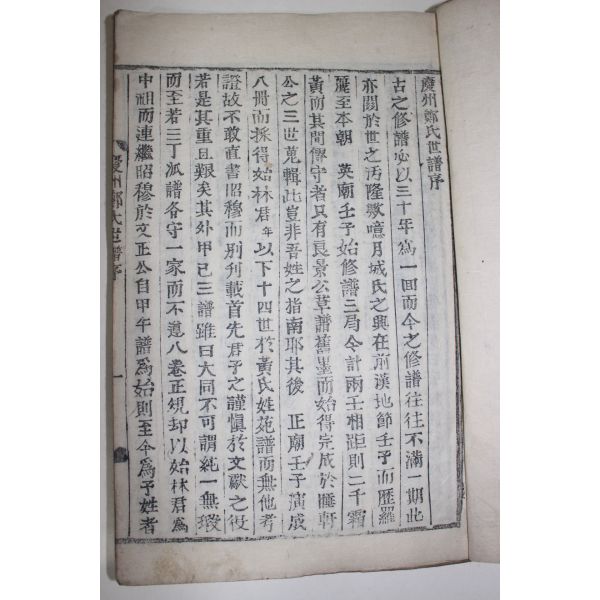 慶州鄭氏世譜序
古之修譜必以三十年爲一回而今之修譜往往不滿一期此
亦關於世之汚隆歟噫月城氏之興在前漢地節壬子而歷羅
麗至本朝 英廟壬子始修譜三局令計兩壬相距則二千霜
黃而其間傳守者只有良景公草譜舊墨而始得完成於睡軒
公之三世蒐輯此豈非吾姓之指南耶其後 正廟壬子演成
八冊而採得始林君年以下十四世於黃氏姓苑譜而無他考
證故不敢直書昭穆而別刋載首先君子之謹愼於文獻之役
若是其重且艱矣其外甲己三譜雖曰大同不可謂純一無瑕
而至若三丁派譜各守一家而不遵八卷正規却以始林君爲
中祖而連繼昭穆於文正公自甲午譜爲始則至今爲予姓者
慶州鄭氏世譜序
一